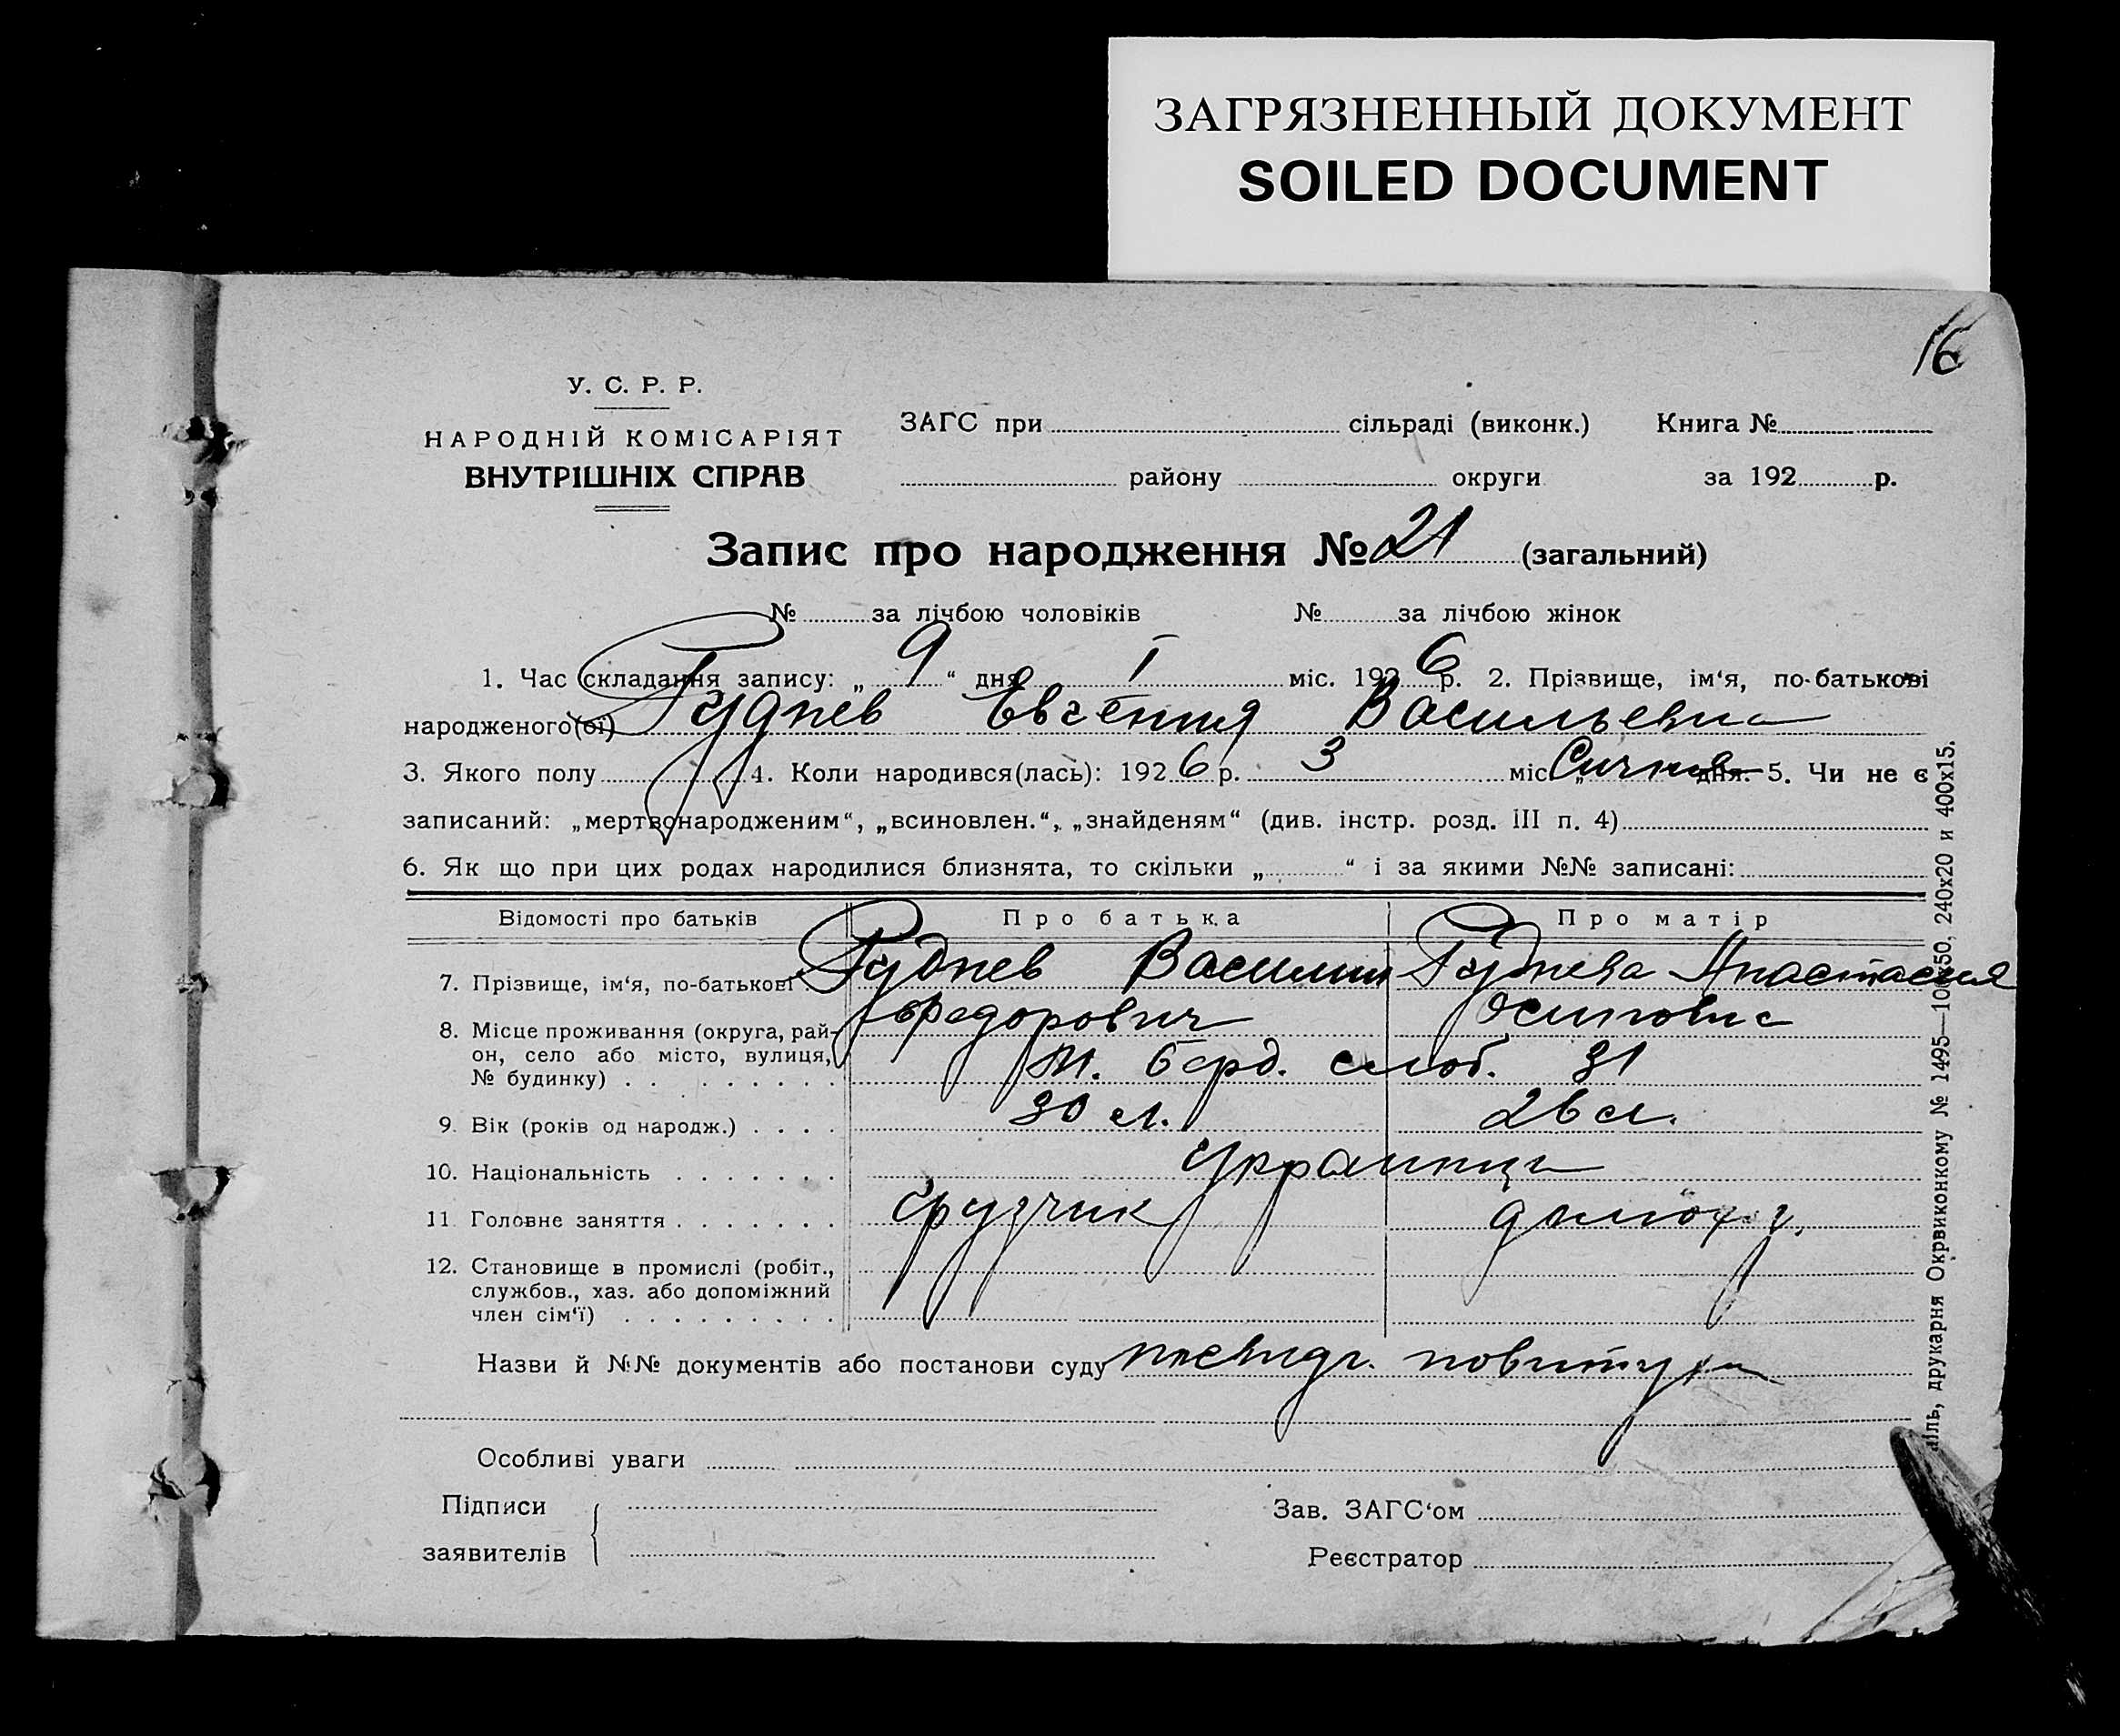 ЗАГРЯЗНЕННЫЙ ДОКУМЕНТ
SOILED DOCUMENT
16
У. С. Р. Р.
НАРОДНІЙ КОМІСАРІЯТ
ВНУТРІШНІХ СПРАВ
ЗАГС при сільраді (виконк.) Книга №
району округи за 192 р.
Запис про народження № 21 (загальний)
№ за лічбою чоловіків № за лічбою жінок
1. Час складання запису: „ 9 “ дня I міс. 1926 р. 2. Прізвище, ім‘я, по-батькові
народженого(ої) Руднев Евгения Васильевна
3. Якого полу 4. Коли народився(лась): 1926 р. 3 міс. „ Січня дня. 5. Чи не є
записаний: „мертвонародженим“, „всиновлен.“, „знайденям“ (див. інстр. розд. III п. 4)
6. Як що при цих родах народилися близнята, то скільки „ “ і за якими №№ записані:
Відомості про батьків Про батька Про матір
7. Прізвище, ім‘я, по-батькові Руднев Василий Руднева Анастасия
Федорович Осиповна
8. Місце проживання (округа, рай-
он, село або місто, вулиця,
№ будинку) М. Берд. слоб. 31
9. Вік (років од народж.) 30 л. 26 л.
10. Національність Украинцы
11. Головне заняття грузчик домохоз.
12. Становище в промислі (робіт.,
службов., хаз. або допоміжний
член сім‘ї)
Назви й №№ документів або постанови суду повитухи
Особливі уваги
Підписи
заявителів
Зав. ЗАГС‘ом
Реєстратор
друкарня Окрвиконкому № 1495—100х50, 240х20 и 400х15.